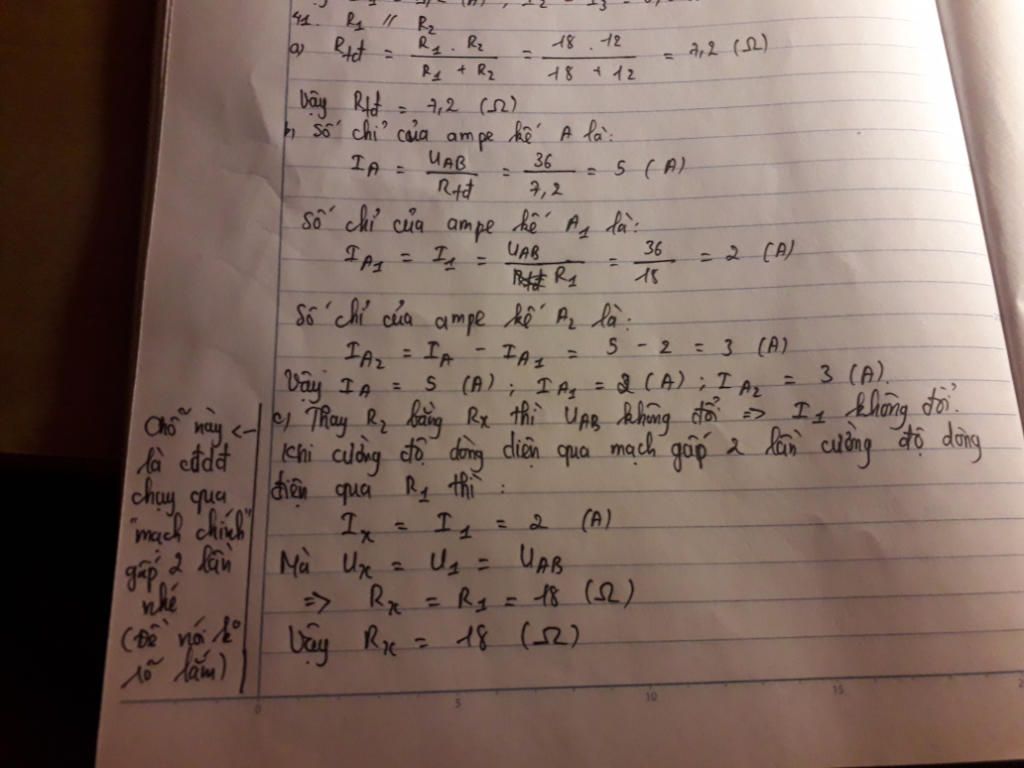 41. R1 // R2
a) Rtđ = R1 . R2 / R1 + R2 = 18 . 12 / 18 + 12 = 7,2 (Ω)
Vậy Rtđ = 7,2 (Ω)
b, Số chỉ của ampe kế A là:
IA = UAB / Rtđ = 36 / 7,2 = 5 (A)
Số chỉ của ampe kế A1 là:
IA1 = I1 = UAB / R1 = 36 / 18 = 2 (A)
Số chỉ của ampe kế A2 là:
IA2 = IA - IA1 = 5 - 2 = 3 (A)
Vậy IA = 5 (A) ; IA1 = 2 (A) ; IA2 = 3 (A).
c) Thay R2 bằng Rx thì UAB không đổi => I1 không đổi.
Khi cường độ dòng điện qua mạch gấp 2 lần cường độ dòng
điện qua R1 thì :
Ix = I1 = 2 (A)
Mà Ux = U1 = UAB
=> Rx = R1 = 18 (Ω)
Vậy Rx = 18 (Ω)
Chỗ này <-
là cđdđ
chạy qua
"mạch chính"
gấp 2 lần
nhé
(Đề nói ko
rõ lắm)
0 5 10 15